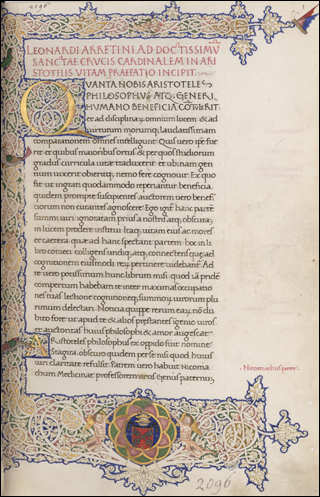 2096.
LEONARDI ARRETINI AD DOCTISSIMV̄
SANCTAE CRVCIS CARDINALEM IN ARI
STOTELIS VITAM PRAEFATIO INCIPIT.
QVANTA NOBIS ARISTOTELES
PHILOSOPHVS ATQ; GENERI
HVMANO BENEFICIA
er ad disciplinaȝ omnium lucem & ad
uirtutum morumq; laudatissimam
comparationem omnes intelligunt. Quis uero ipse fue
rit et quibus maioribus ortus & per quos studiorum
gradus curricula uitae traduxerit et ubinam gen
tium uixerit obieritq; nemo fere cognouit. Ex quo
fit ut ingrati quodammodo reperiantur beneficia
quidem prompte suscipientes auctorem uero benefi
ciorum non curantes agnoscere. Ego igit̄ hanc partē
summi uiri ignoratam prius a nostris atq; obscurā;
in lucem prodere institui. Itaq; uitam eius ac mores
et caetera quae ad hanc spectant partem hoc in li
bro conieci
cognitionem eiusmodi rei pertinere uidebant̄. Ad
te uero potissimum hunc librum misi quod iā pridē
compertum habebam te inter maximas occupatio
nes tuas lectione cognitioneq; summoȝ uirorum plu
rimum delectari. Noticia quippe rerum eaȝ nō du
bito fore ut apud te & alios prestantes igenio uiros
et auctoritas huius philosophi & amor augescat
ARistoteles philosophus ex oppido fuit nomine
Stagira obscuro quidem per se nisi quod huius
uiri claritate refulsit. Patrem uero habuit Nicoma
chum Medicinae professorem
Nicomachus pater.
2096